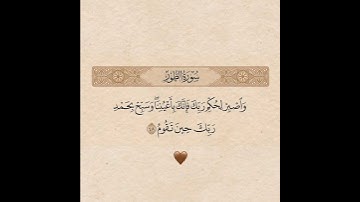 سُورَةُ الطُّورِ
وَاصْبِرْ لِحُكْمِ رَبِّكَ فَإِنَّكَ بِأَعْيُنِنَا وَسَبِّحْ بِحَمْدِ
رَبِّكَ حِينَ تَقُومُ ٤٨